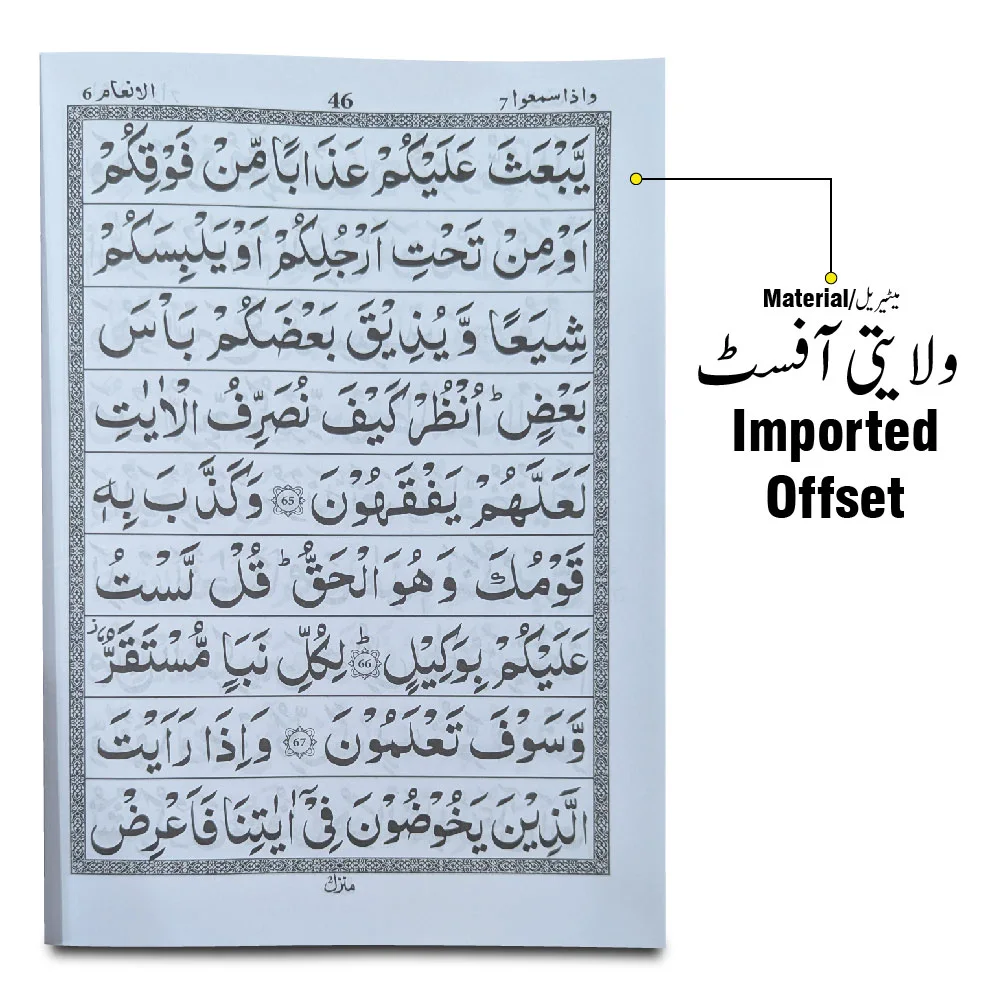 الانعام 6
46
واذاسمعوا 7
يَّبْعَثَ عَلَيْكُمْ عَذَابًا مِّنْ فَوْقِكُمْ
اَوْ مِنْ تَحْتِ اَرْجُلِكُمْ اَوْ يَلْبِسَكُمْ
شِيَعًا وَّ يُذِيْقَ بَعْضَكُمْ بَاْسَ
بَعْضٍ ؕ اُنْظُرْ كَيْفَ نُصَرِّفُ الْاٰيٰتِ
لَعَلَّهُمْ يَفْقَهُوْنَ 65 وَكَذَّبَ بِهٖ
قَوْمُكَ وَهُوَ الْحَقُّ ؕ قُلْ لَّسْتُ
عَلَيْكُمْ بِوَكِيْلٍ ؕ 66 لِكُلِّ نَبَاٍ مُّسْتَقَرٌّ ؗ
وَّسَوْفَ تَعْلَمُوْنَ 67 وَاِذَا رَاَيْتَ
الَّذِيْنَ يَخُوْضُوْنَ فِيْۤ اٰيٰتِنَا فَاَعْرِضْ
منزل
Material/میٹیریل
ولایتی آفسٹ
Imported
Offset